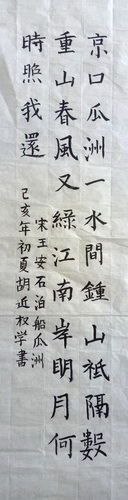 京口瓜洲一水間鍾山祗隔數
重山春風又綠江南岸明月何
時照我還
宋王安石泊船瓜洲
己亥年初夏胡近权学書